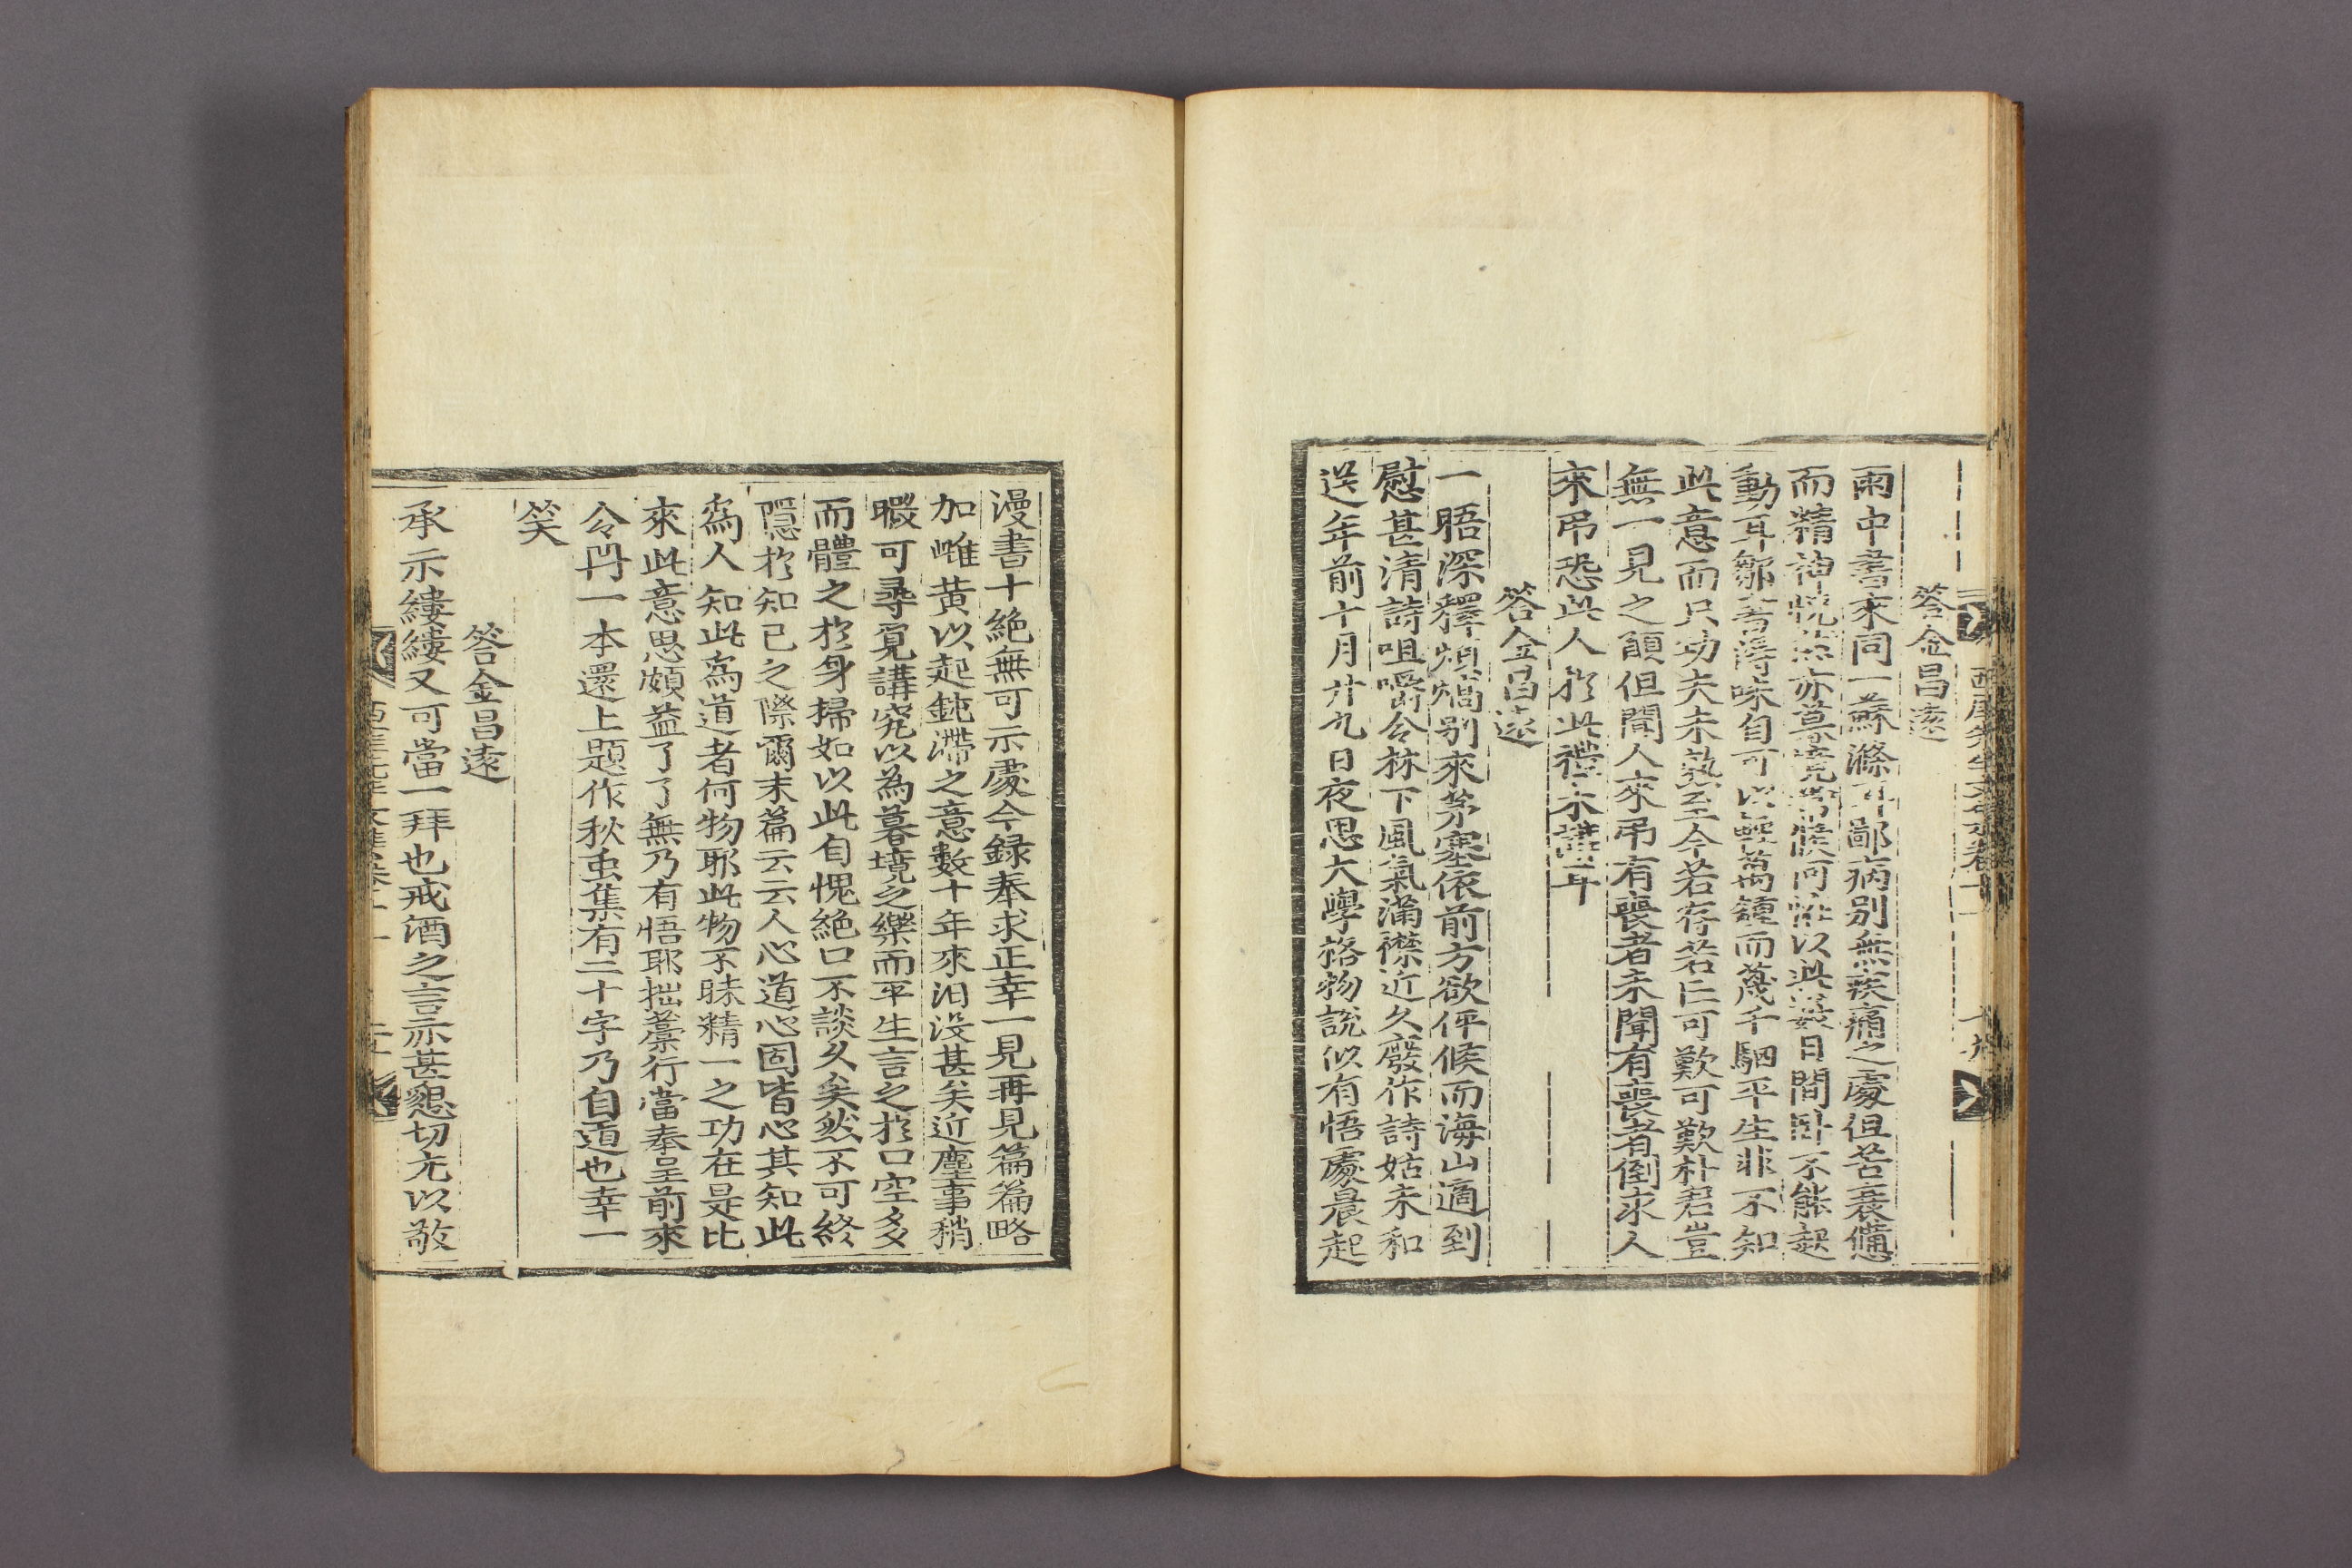 答金昌遠
雨中書來同一蘇滌耳鄙病別無疾痛之處但苦衰憊
而精神怳然亦莫曉爲候何恠以此盡日閒臥不能起
動耳鄒書得味自可以輕萬鍾而蔑千駟平生非不知
此意而只功夫未熟至今若存若亡可歎可歎朴君豈
無一見之願但聞人來弔有喪者未聞有喪者倒求人
來弔恐此人於此禮未講耳
答金昌遠
一晤深釋煩惱別來茅塞依前方欲伻候而海山適到
慰甚清詩咀嚼令林下風氣滿襟近久廢作詩姑未和
送年前十月廿九日夜思大學格物說似有悟處晨起
漫書十絶無可示處今録奉求正幸一見再見篇篇略
加雌黄以起鈍滯之意數十年來汨没甚矣近塵事稍
暇可尋覓講究以為暮境之樂而平生言之於口空多
而體之於身掃如以此自愧絶口不談久矣然不可終
隱於知己之際爾末篇云云人心道心固皆心其知此
爲人知此爲道者何物耶此物不昧精一之功在是比
來此意思頗益了了無乃有悟耶拙藁行當奉呈前來
令丹一本還上題作秋虫集有二十字乃自道也幸一
笑
答金昌遠
承示縷縷又可當一拜也戒酒之言亦甚懇切尤以敬